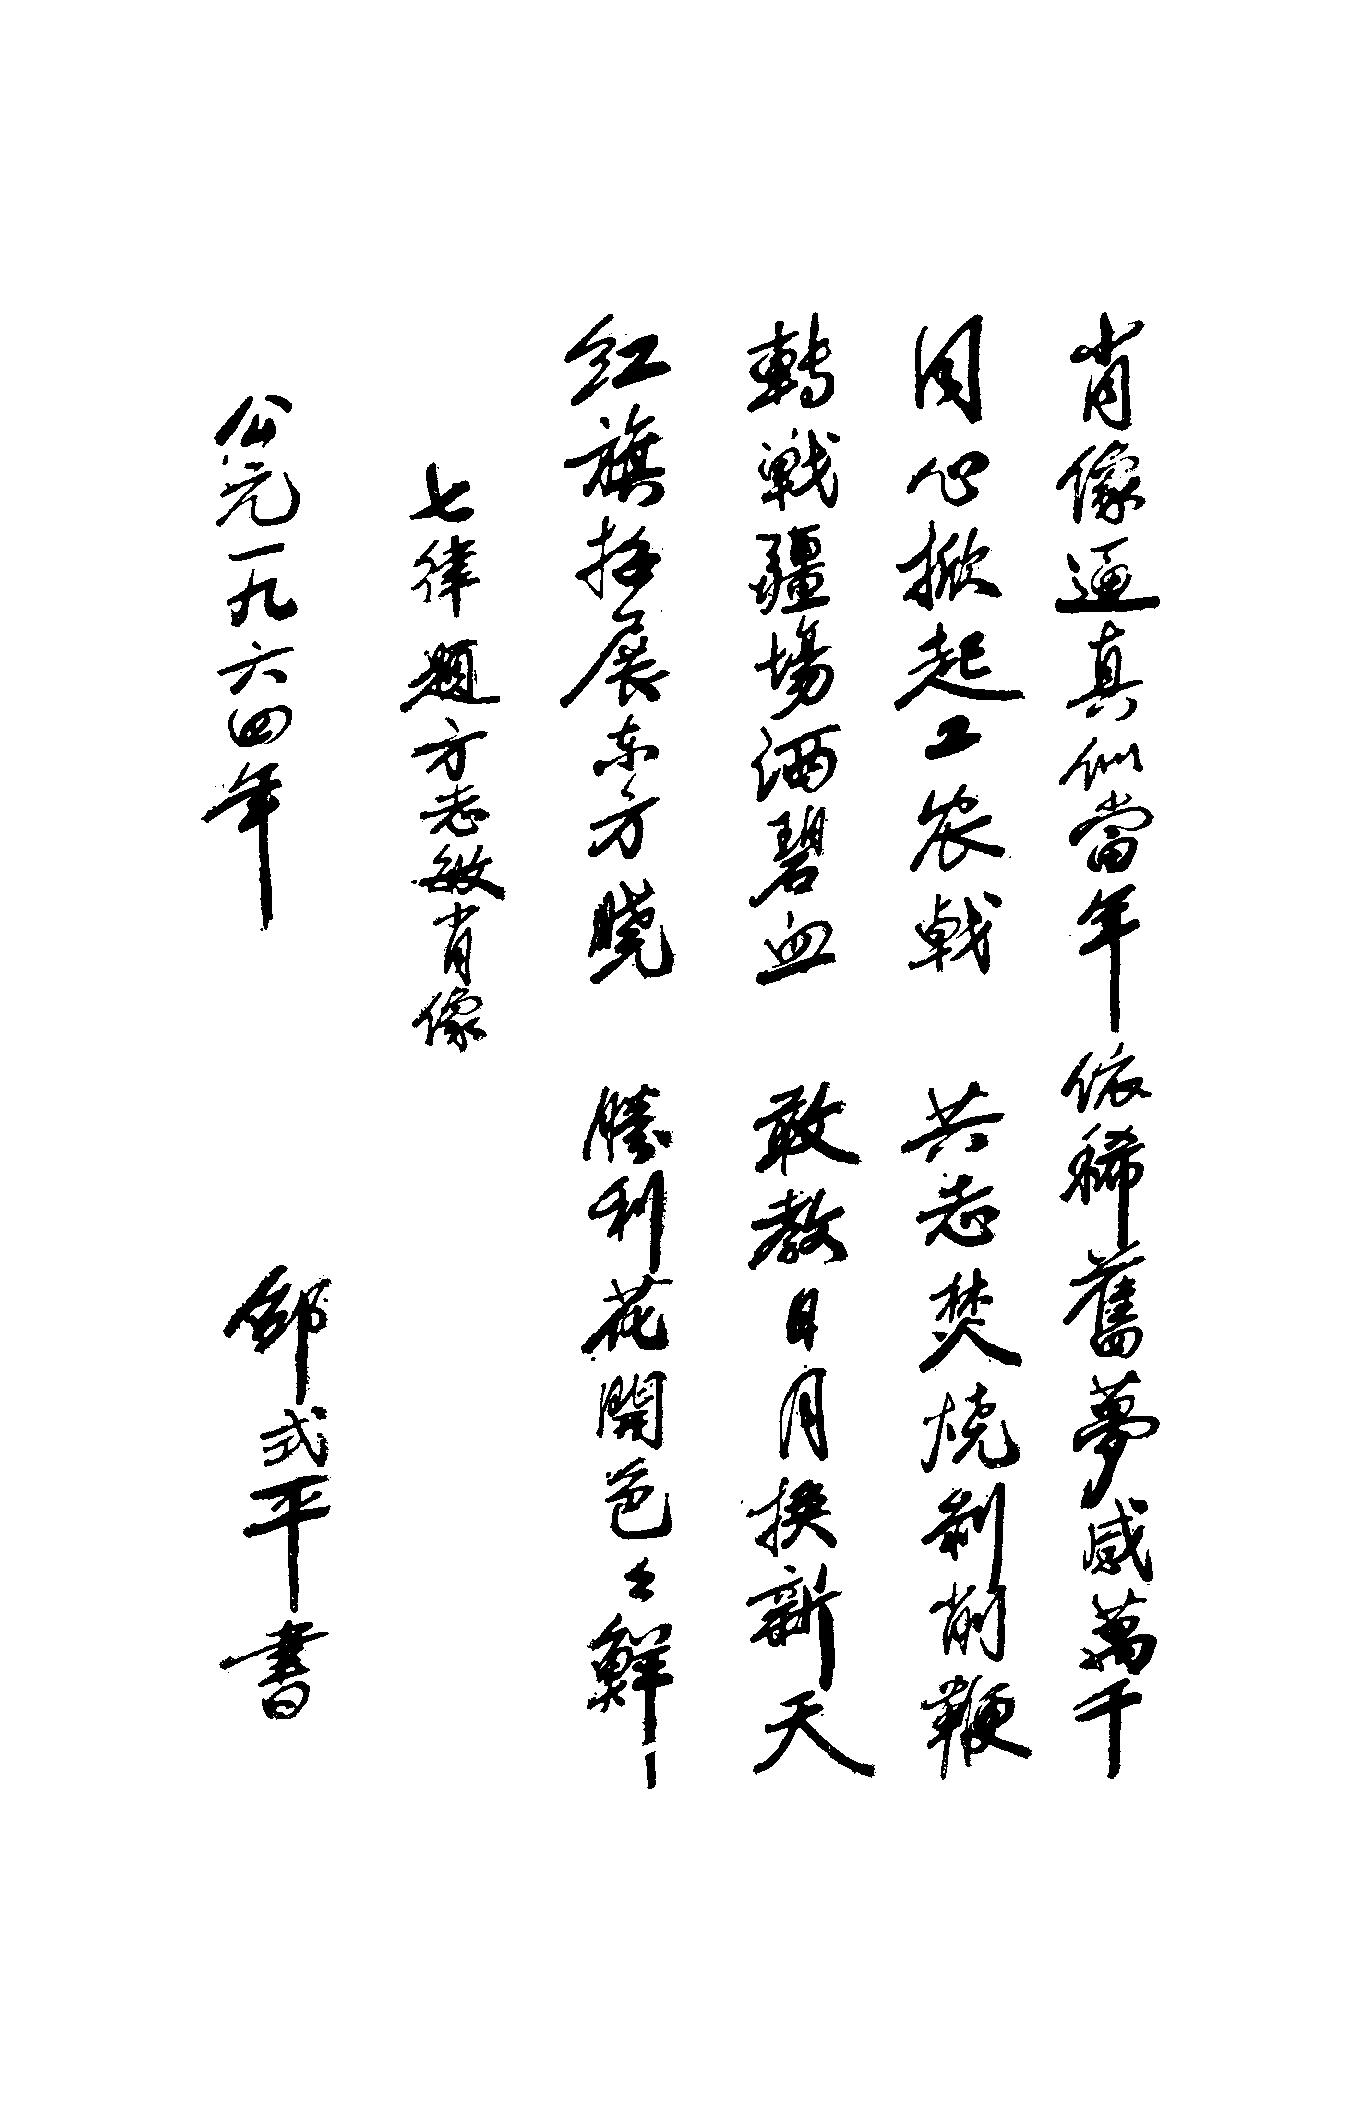 肖像逼真似當年 依稀舊夢感萬千
同心掀起工农戟 共志焚燒剥削鞭
轉戰疆場洒碧血 敢教日月换新天
红旗招展东方曉 勝利花開色々鮮
七律 題方志敏肖像
公元一九六四年 邵式平書